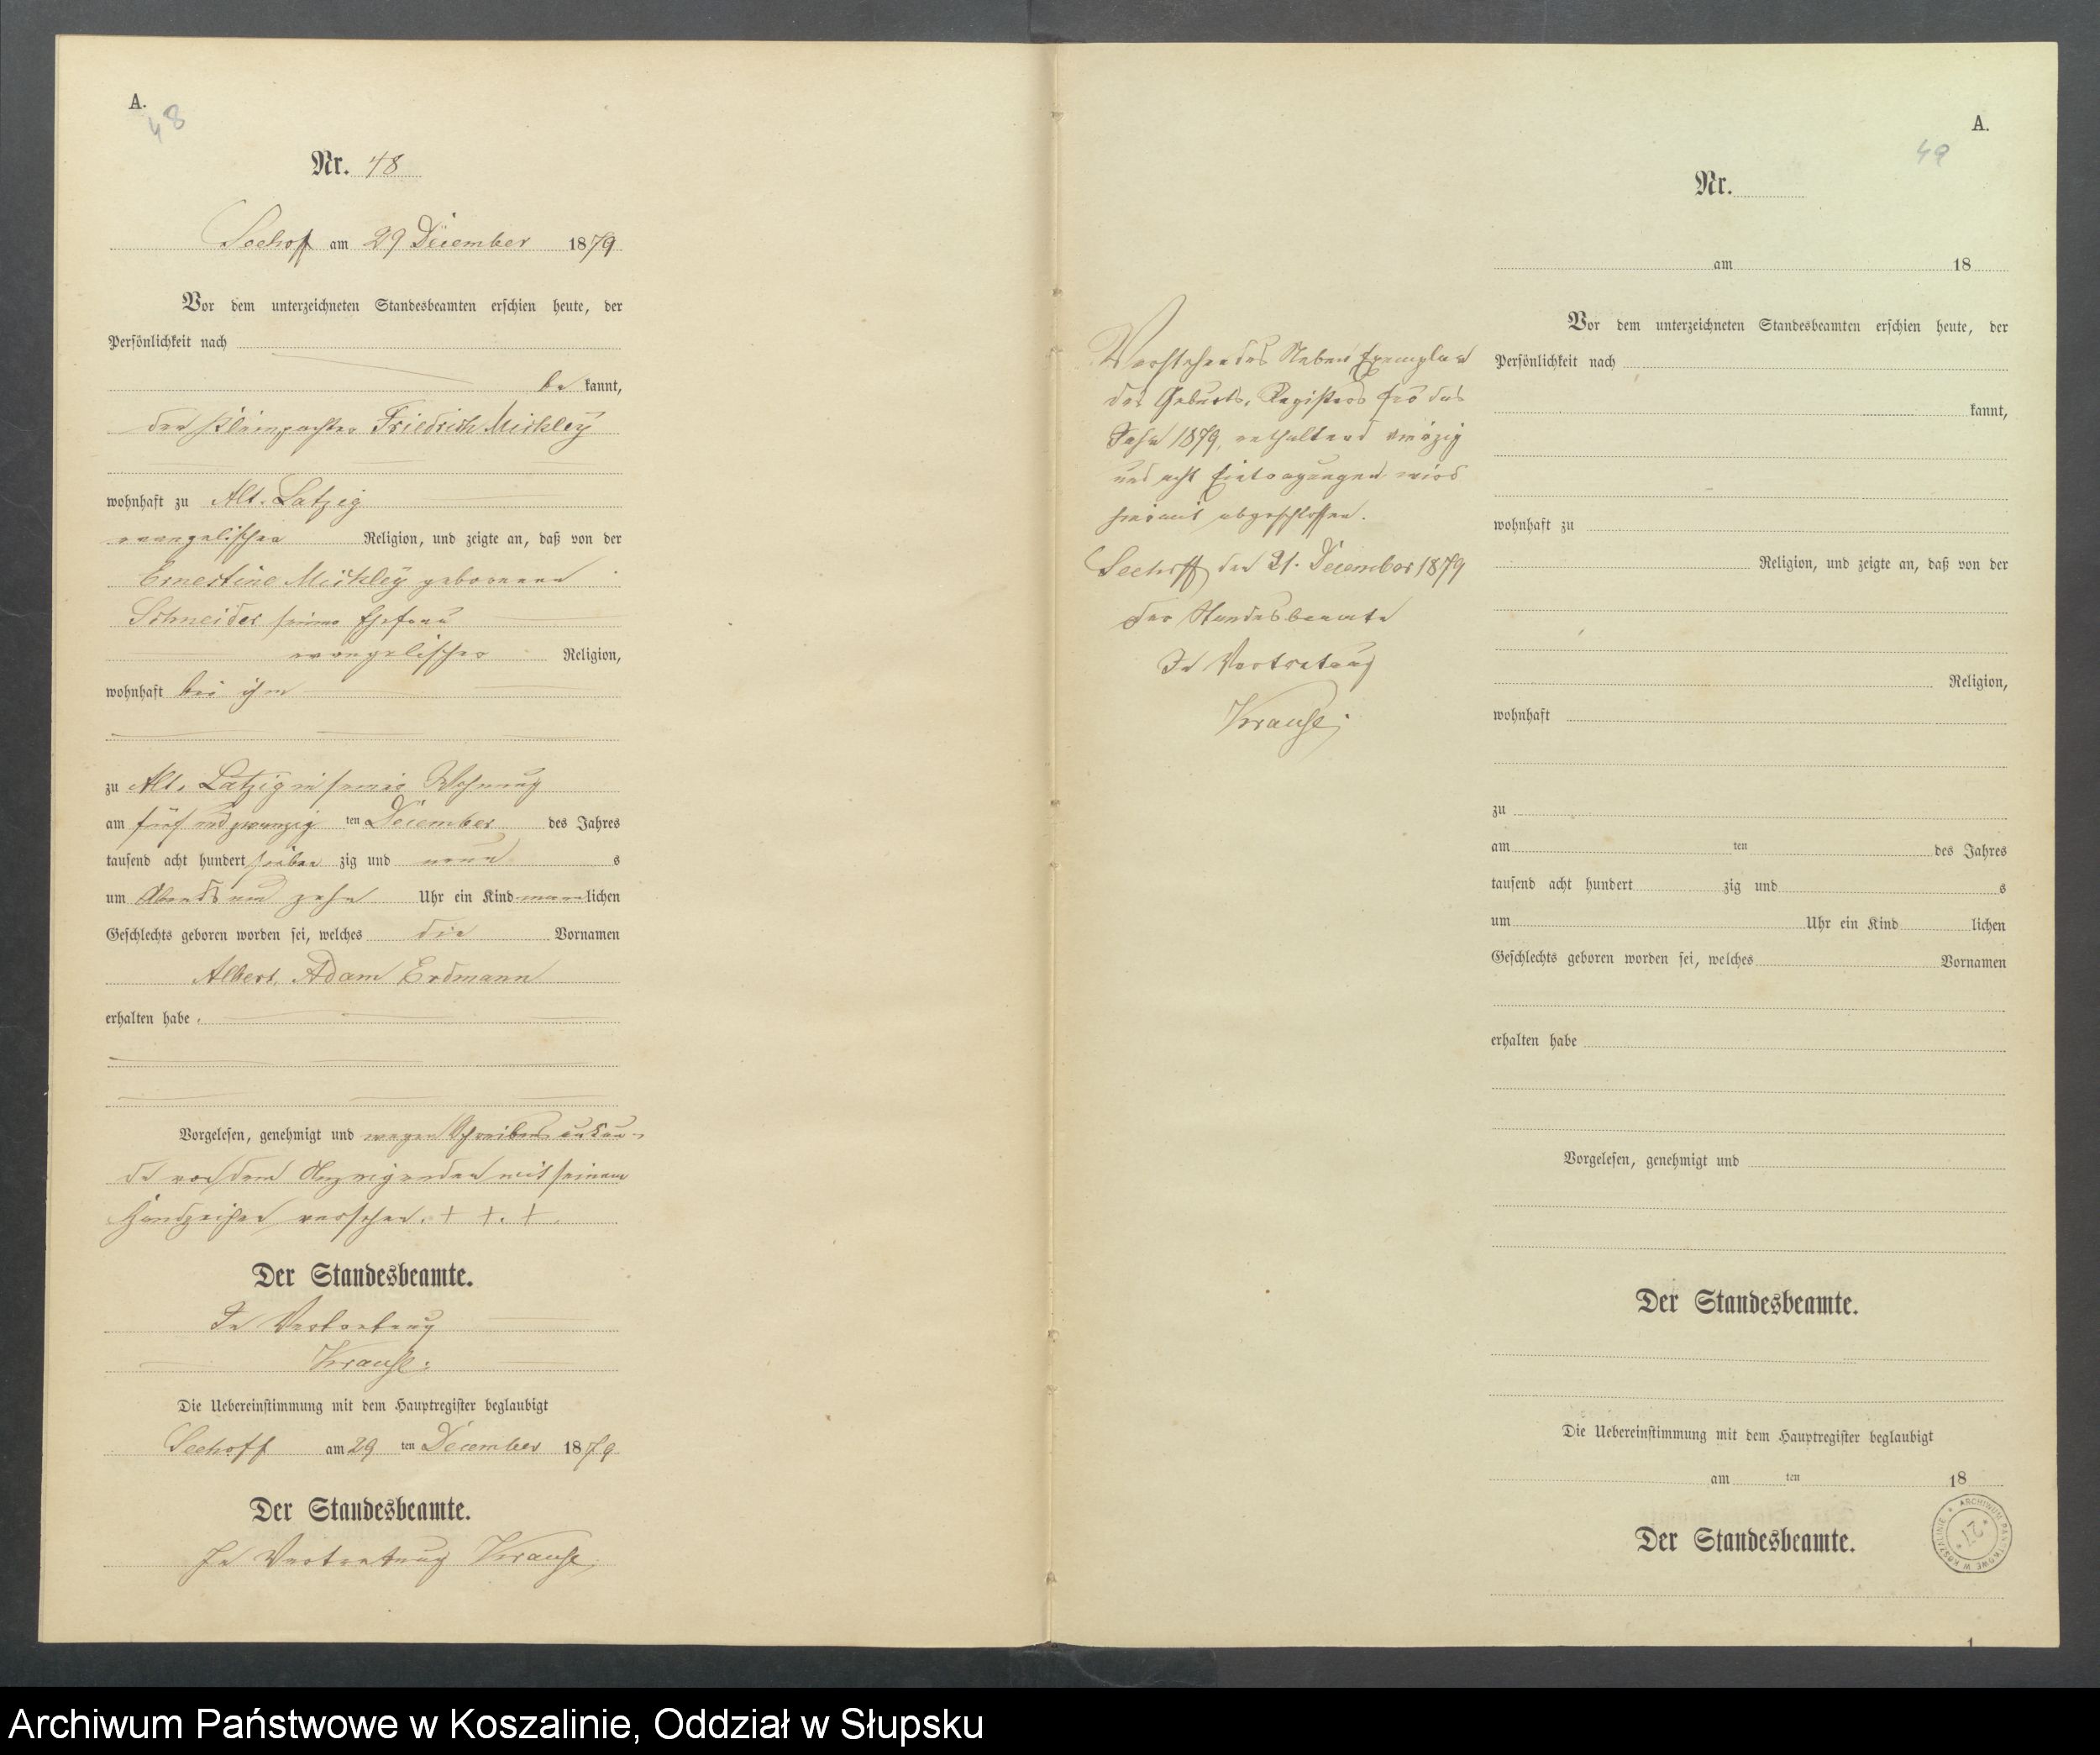 A.
48
Nr. 48
Seehof am 29 December 1879
Vor dem unterzeichneten Standesbeamten erschien heute, der
Persönlichkeit nach
be kannt,
der Kleinpachter Friedrich Mickley
wohnhaft zu Alt. Latzig
evangelischer Religion, und zeigte an, daß von der
Ernestine Mickley geborenen
Schneider seiner Ehefrau
evangelischer Religion,
wohnhaft bei ihm
zu Alt. Latzig in seiner Wohnung
am fünf und zwanzig ten December des Jahres
tausend acht hundert sieben zig und neun s
um Abends um zehn Uhr ein Kind mannlichen
Geschlechts geboren worden sei, welches die Vornamen
Albert, Adam Erdmann
erhalten habe.
Vorgelesen, genehmigt und wegen Schreibens unkun-
de von dem Anzeigenden mit seinem
Handzeichen versehen. + +. +.
Der Standesbeamte.
In Vertretung
Krause.
Die Uebereinstimmung mit dem Hauptregister beglaubigt
Seehoff am 29 ten December 1879
Der Standesbeamte.
In Vertretung Krause.
Vorstehendes Neben Exemplar
des Geburts, Registers für das
Jahr 1879, enthaltend vierzig
und acht Eintragungen wird
hiermit abgeschlossen.
Seehoff den 31. December 1879
der Standesbeamte
In Vertretung
Krause.
A.
49
Nr.
am 18
Vor dem unterzeichneten Standesbeamten erschien heute, der
Persönlichkeit nach
kannt,
wohnhaft zu
Religion, und zeigte an, daß von der
Religion,
wohnhaft
zu
am ten des Jahres
tausend acht hundert zig und s
um Uhr ein Kind lichen
Geschlechts geboren worden sei, welches Vornamen
erhalten habe
Vorgelesen, genehmigt und
Der Standesbeamte.
Die Uebereinstimmung mit dem Hauptregister beglaubigt
am ten 18
Der Standesbeamte.
ARCHIWUM PAŃSTWOWE W KOSZALINIE
21
1
Archiwum Państwowe w Koszalinie, Oddział w Słupsku